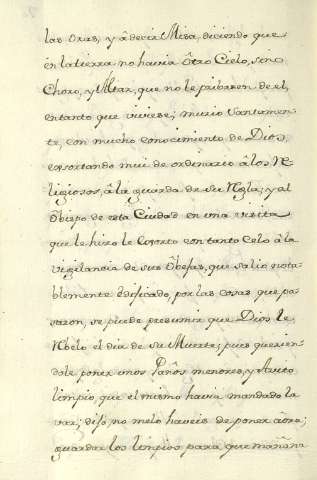 las Oras, y à decir Misa, diciendo que
en la tierra no havia ôtro Cielo, sino
Choro, y Altar, que no le pribaren de el,
entanto que viviese; murio Santamen-
te, con mucho conocimiento de Dios,
exsortando mui de ordinario â los Re-
ligiosos, â la guarda de su Regla; y al
Obispo de esta Ciudad en una visita
que le hizo le Exsorto con tanto Celo â la
vigilancia de sus Obejas, que salio nota-
blemente edificado, por las cosas que pa-
saron, se puede presumir que Dios le
Rebelo el dia de su Muerte; pues querien-
dole poner unos Paños menores, y Avito
limpio, que el mismo havia mandado la
var; dijo, no me lo haveis de poner aôra;
guardar los limpios para que mañana